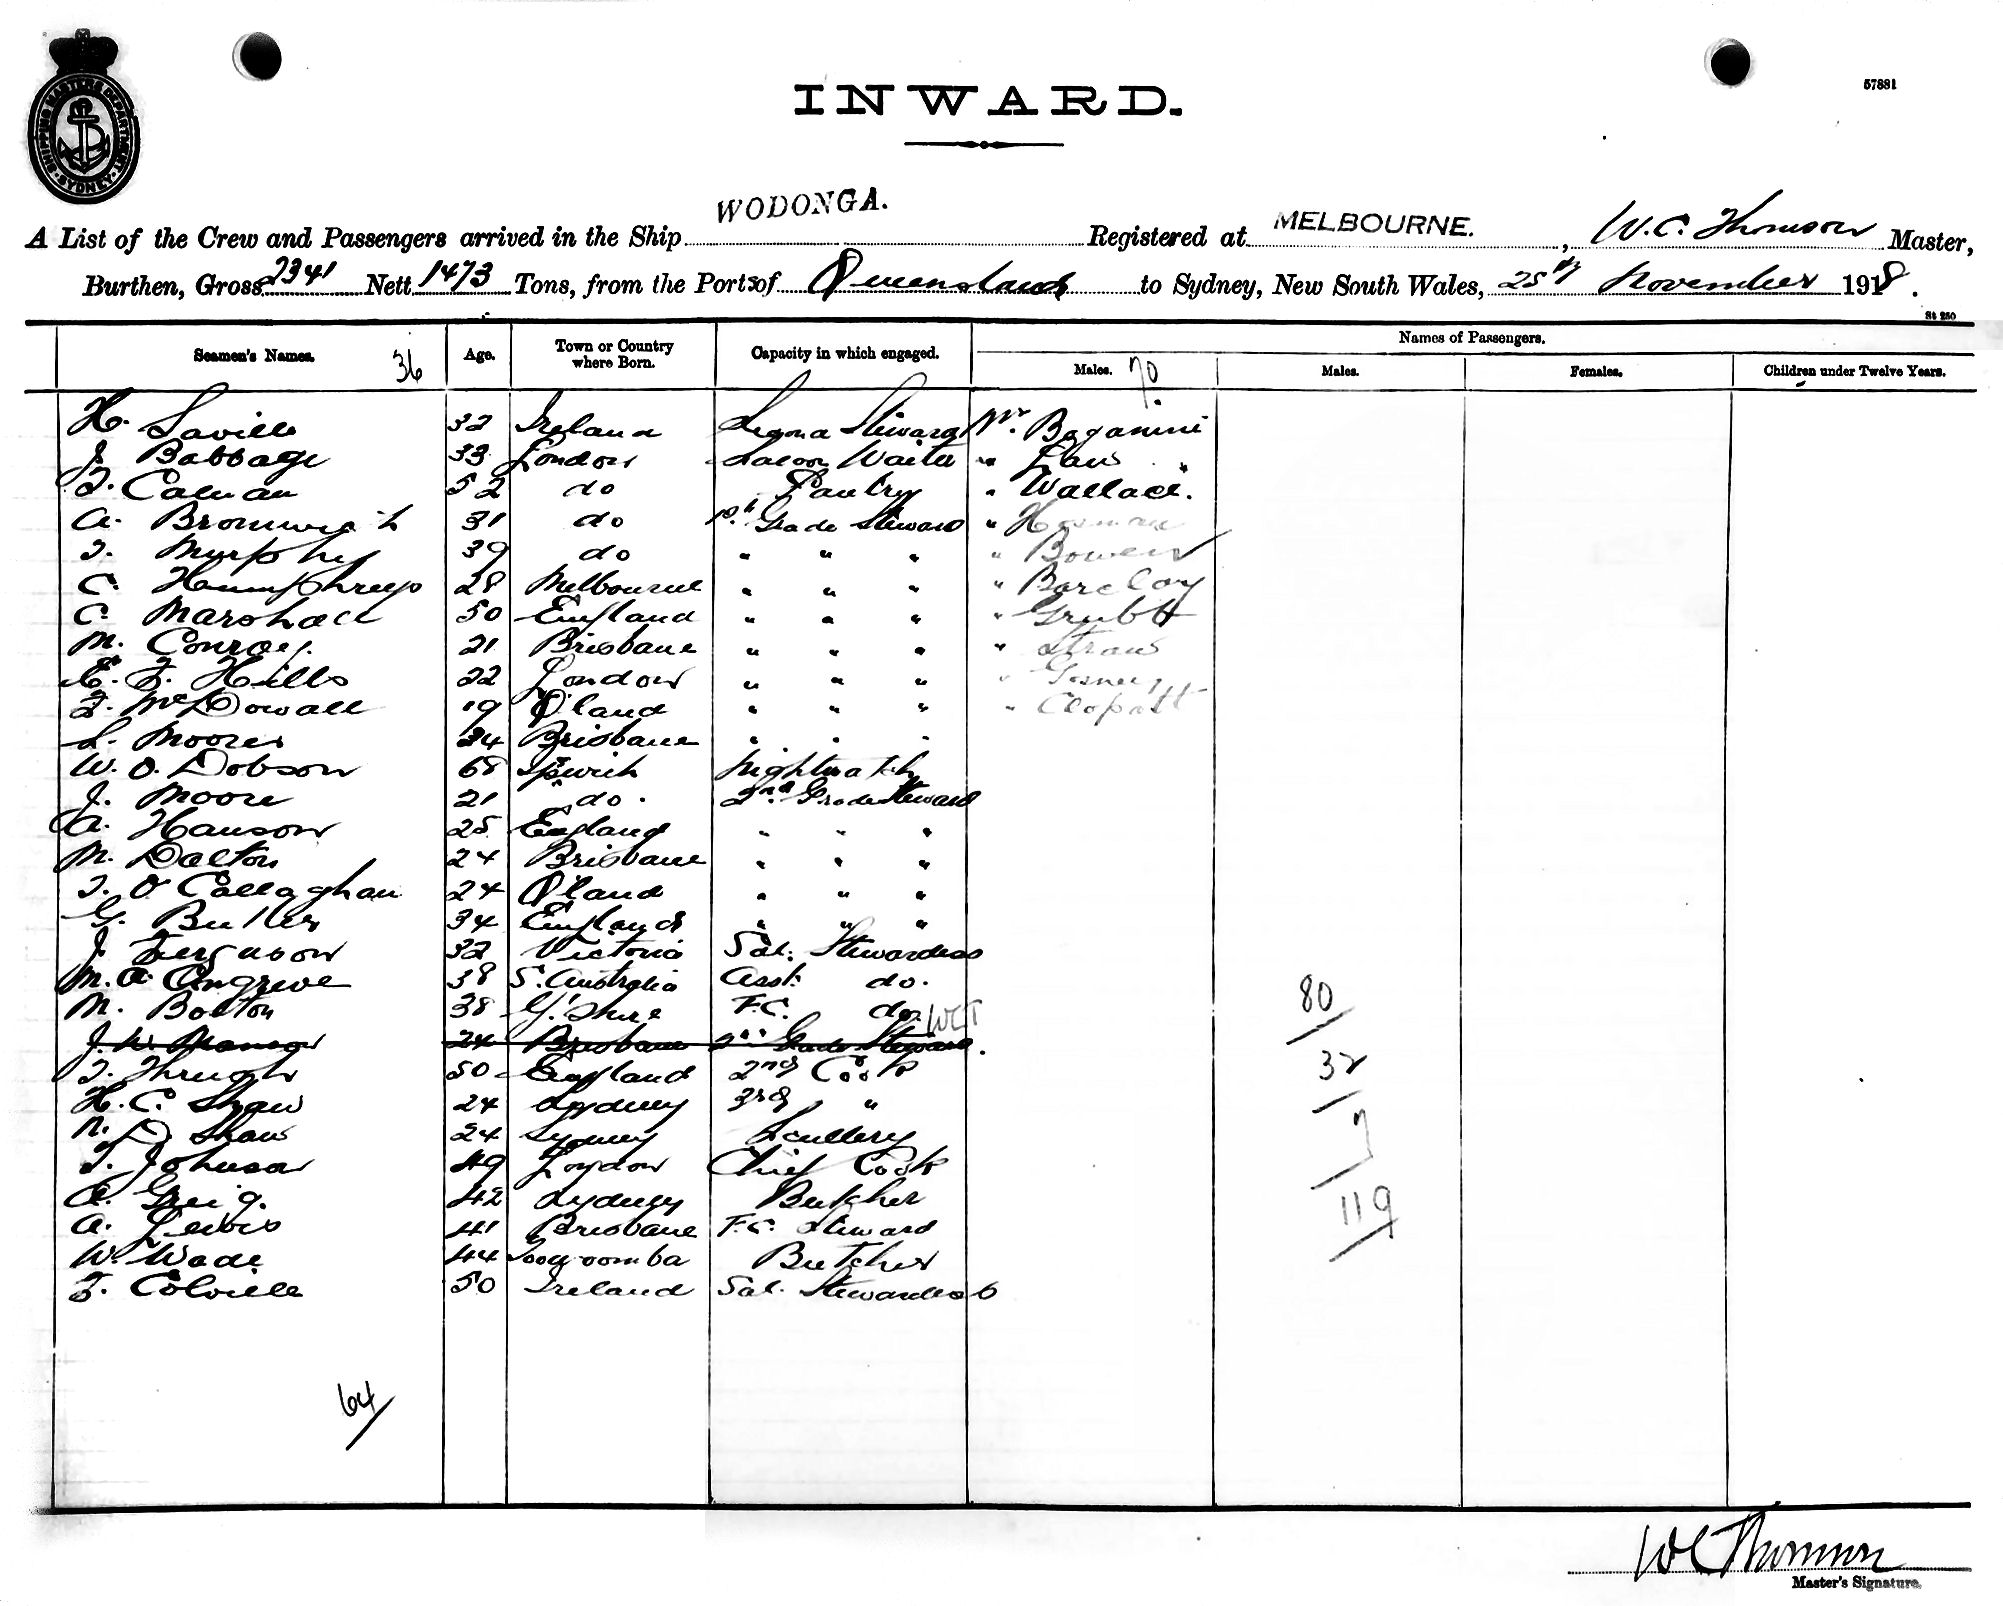 SHIPPING MASTERS DEPARTMENT
SYDNEY
57881
INWARD.
A List of the Crew and Passengers arrived in the Ship WODONGA. Registered at MELBOURNE., W.C. Thomson Master,
Burthen, Gross 2341 Nett 1473 Tons, from the Ports of Queensland to Sydney, New South Wales, 25th November 1918.
St 250
Seamen's Names. 36 Age. Town or Country where Born. Capacity in which engaged. Names of Passengers.
Males. 70 Males. Females. Children under Twelve Years.
H. Saville 32 Ireland Steward Mr. Baganini
J. Babbage 33 London Saloon Waiter " Law
T. Calman 52 do Pantry " Wallace.
A. Bromwich 31 do 1st Grade Steward "
T. Murphy 39 do " " " " Bowen
C. Humphreys 28 Melbourne " " " " Barclay
C. Marshall 50 England " " " " Grubb
M. Conroy. 21 Brisbane " " " " Straw
E. F. Hills 22 London " " " "
F. McDowall 19 Q'land " " " "
S. Moores 24 Brisbane " " "
W. O. Dobson 68 Ipswich Nightwatch
J. Moore 21 do. 2nd Grade Steward
A. Hanson 25 England " " "
M. Dalton 24 Brisbane " " "
T. O'Callaghan 24 Q'land " " "
G. Butler 34 England " " "
J. Ferguson 32 Victoria Sal. Stewardess
M. A. Angrave 38 S. Australia Asst. do.
M. Bolton 38 F.C. do. WCT
J. W. 24 Brisbane 2nd Grade Steward.
T. 50 England 2nd Cook
H. C. Shaw 24 Sydney 3rd "
N. D. Shaw 24 Sydney Scullery
T. Johnson 49 London Chief Cook
A. Greig. 42 Sydney Butcher
A. Lewis 41 Brisbane F.C. Steward
W. Wade 44 Toowoomba Butcher
F. Colville 50 Ireland Sal. Stewardess
80
32
7
119
64
WC Thomson
Master's Signature.